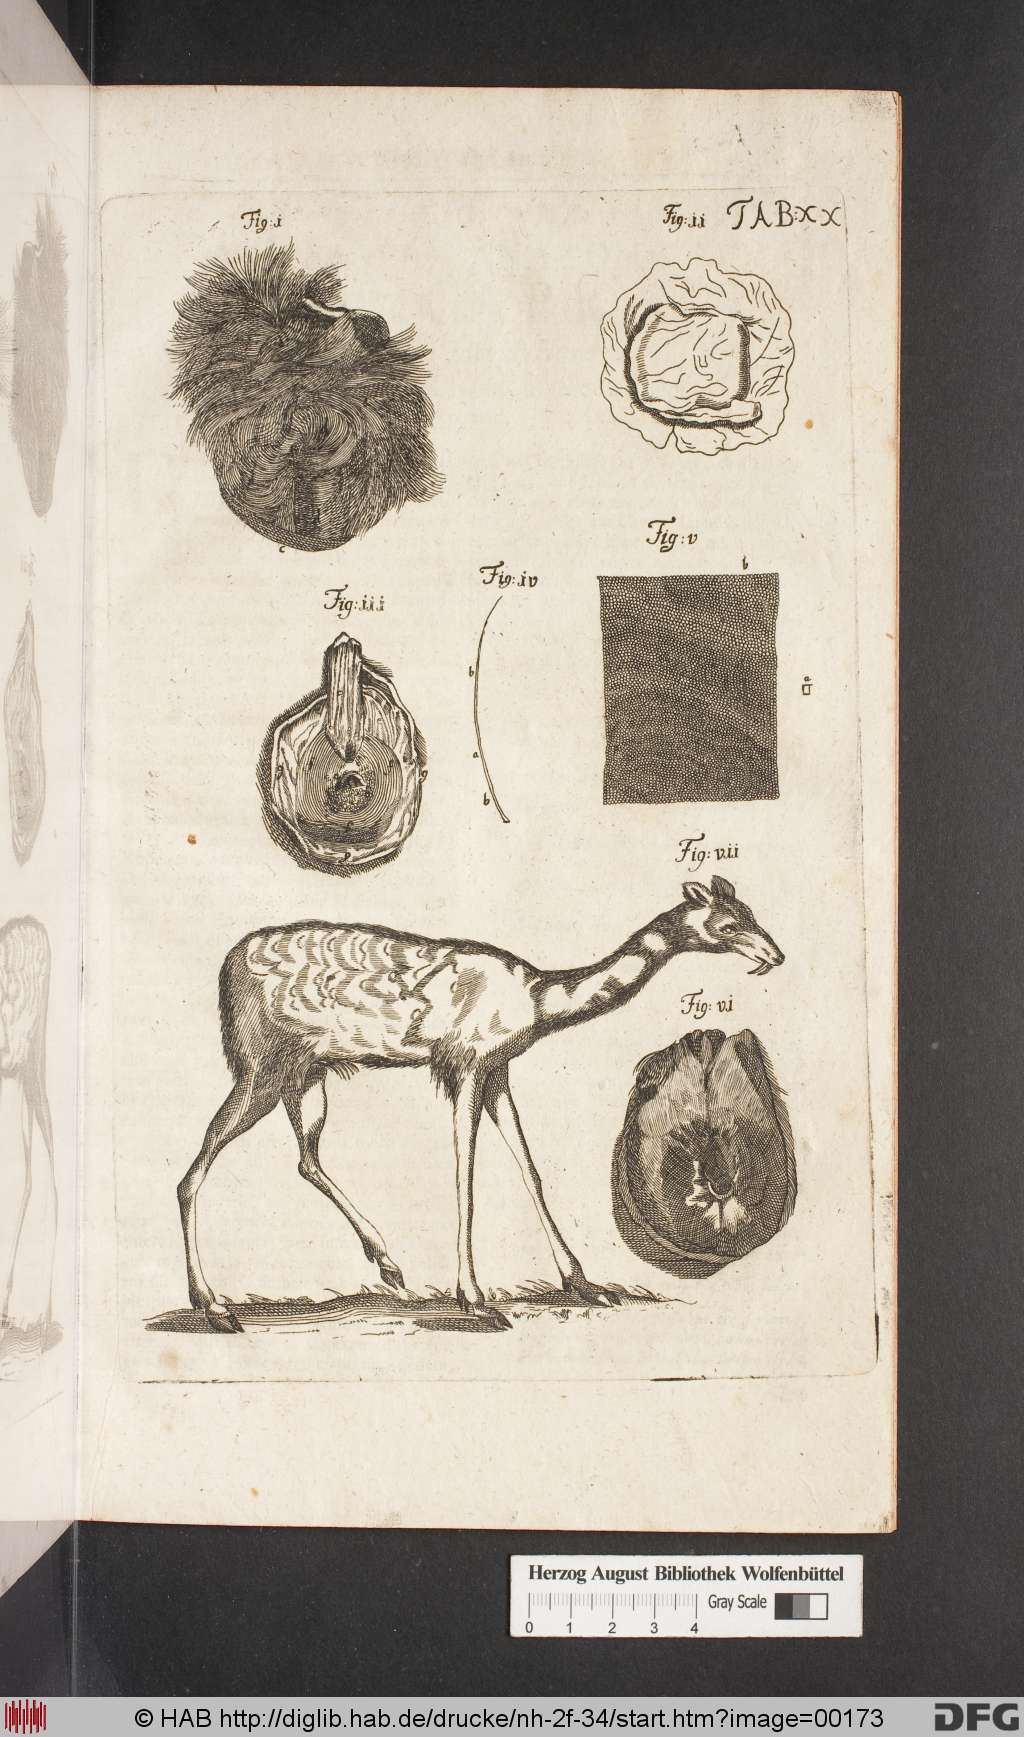 Fig: i
Fig: ii TAB: XX
c
Fig: v
b
Fig: iv
Fig: iii
b
a
a
b
Fig: vii
Fig: vi
Herzog August Bibliothek Wolfenbüttel
Gray Scale
0 1 2 3 4
© HAB http://diglib.hab.de/drucke/nh-2f-34/start.htm?image=00173
DFG